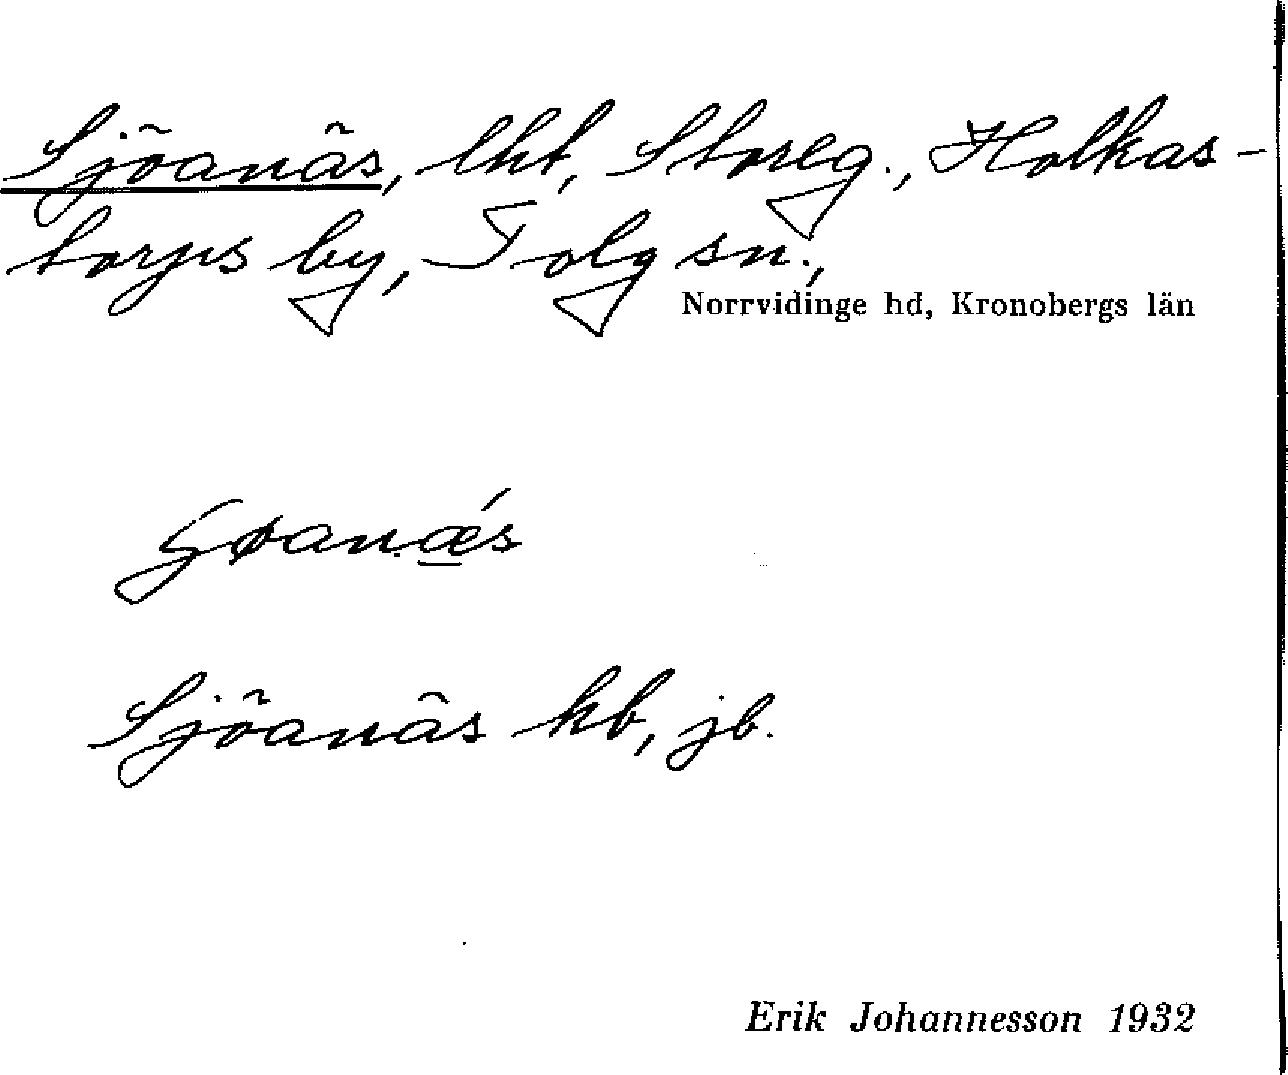 Sjöanäs, lht, Storeg., Holkas-
torps by, Tolg sn.,
Norrvidinge hd, Kronobergs län
Sjöanäs kb, jb.
Erik Johannesson 1932